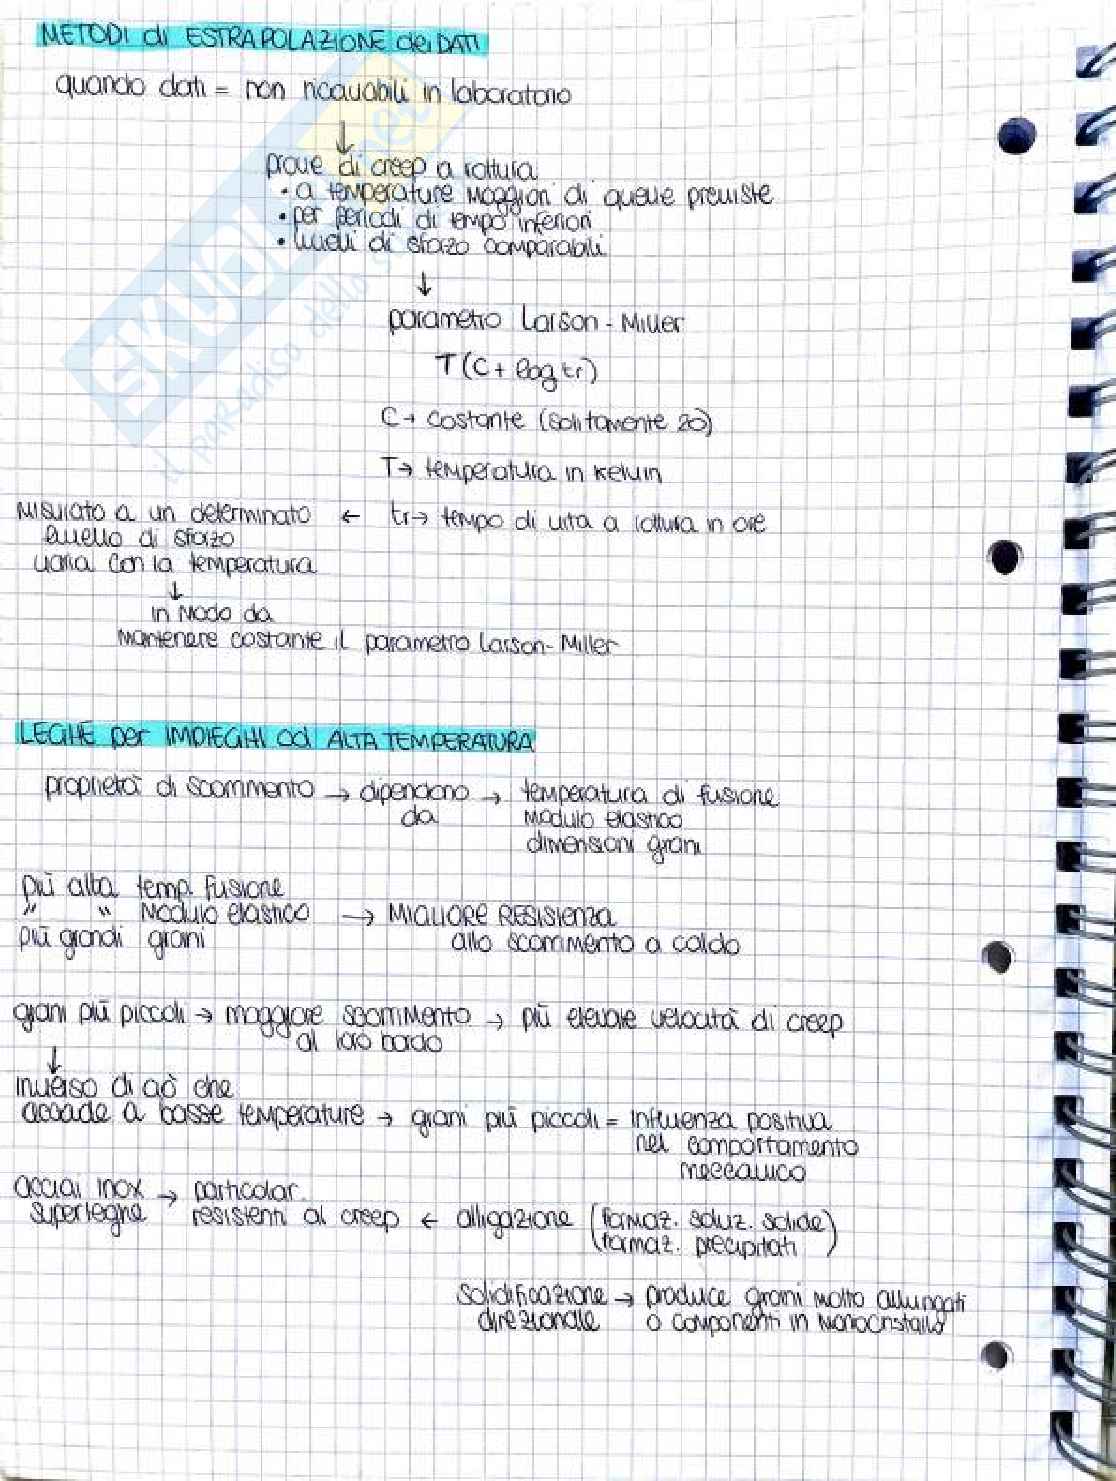 METODI di ESTRAPOLAZIONE dei DATI
quando dati = non ricavabili in laboratorio
↓
prove di creep a rottura
• a temperature maggiori di quelle previste
• per periodi di tempo inferiori
• livelli di sforzo comparabili
↓
parametro Larson-Miller
T(C + log tr)
C → costante (solitamente 20)
T → temperatura in kelvin
misurato a un determinato ← tr → tempo di vita a rottura in ore
livello di sforzo
varia con la temperatura
↓
in modo da
mantenere costante il parametro Larson-Miller
LEGHE per IMPIEGHI ad ALTA TEMPERATURA
proprietà di scorrimento → dipendono → temperatura di fusione
da modulo elastico
dimensioni grani
più alta temp. fusione
" " modulo elastico → MIGLIORE RESISTENZA
più grandi grani allo scorrimento a caldo
grani più piccoli → maggiore scorrimento → più elevate velocità di creep
al loro bordo
↓
inverso di ciò che
accade a basse temperature → grani più piccoli = influenza positiva
nel comportamento
meccanico
acciai inox → particolar.
superleghe resistenti al creep ← alligazione (formaz. soluz. solide)
(formaz. precipitati)
solidificazione → produce grani molto allungati
direzionale o componenti in monocristallo
SKUOLA.net
il paradiso dello